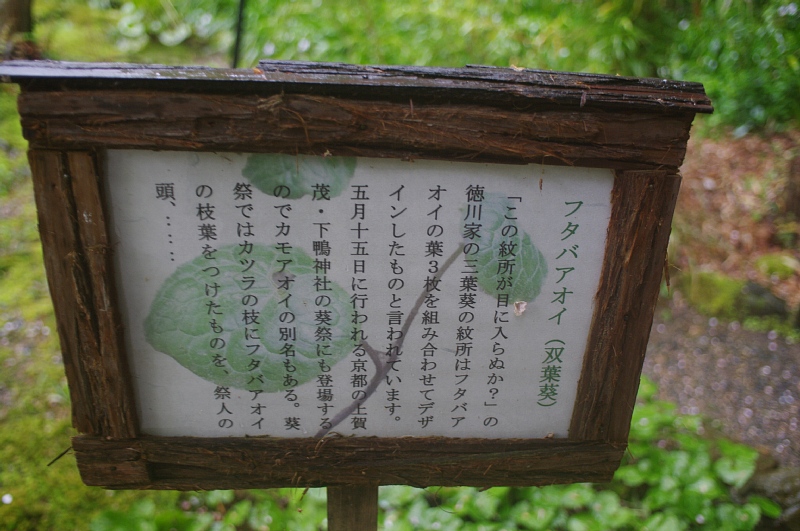 フタバアオイ（双葉葵）
「この紋所が目に入らぬか？」の
徳川家の三葉葵の紋所はフタバア
オイの葉３枚を組み合わせてデザ
インしたものと言われています。
五月十五日に行われる京都の上賀
茂・下鴨神社の葵祭にも登場する
のでカモアオイの別名もある。葵
祭ではカツラの枝にフタバアオイ
の枝葉をつけたものを、祭人の
頭、……